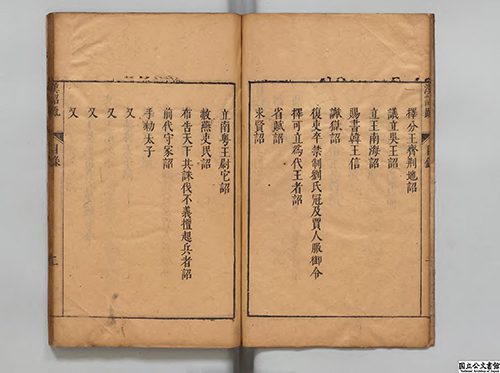 漢詔疏
目錄
擇分王齊荆地詔
議立吳王詔
立王南海詔
賜書韓王信
讞獄詔
復吏卒禁制劉氏冠及賈人服御令
擇可立爲代王者詔
省賦詔
求賢詔
立南粵王尉它詔
赦燕吏民詔
布告天下共誅伐不義擅起兵者詔
前代守冢詔
手勅太子
又
又
又
漢詔疏
目錄
国立公文書館
National Archives of Japan